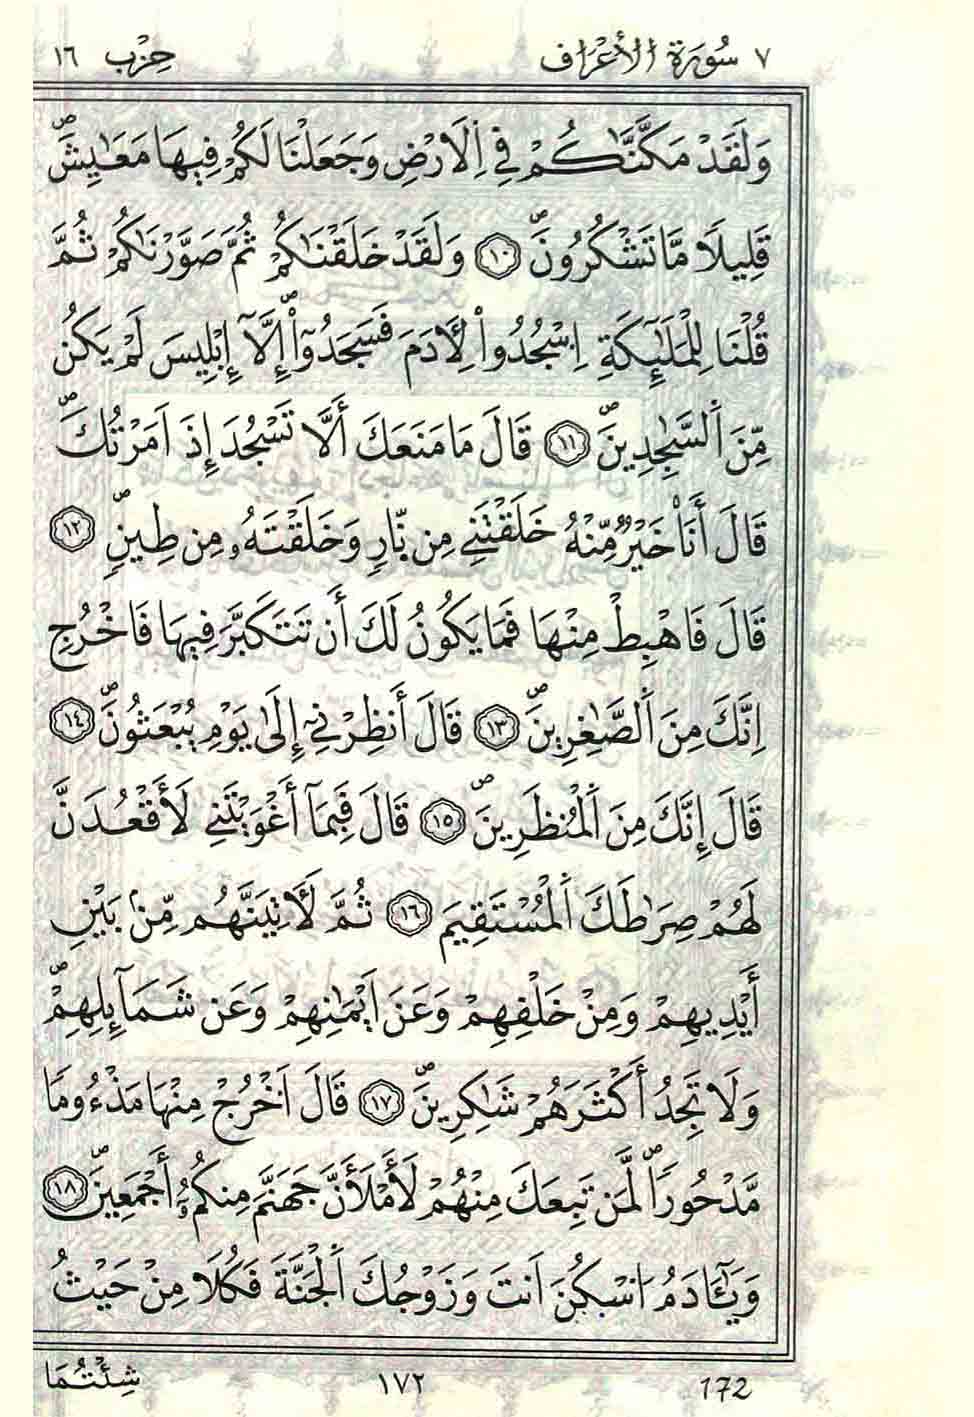 ٧ سُورَةُ الأَعْرَافِ حِزْب ١٦
وَلَقَدْ مَكَّنَّٰكُمْ فِے اِ۬لَارْضِ وَجَعَلْنَا لَكُمْ فِيهَا مَعَٰيِشَۖ
قَلِيلاً مَّا تَشْكُرُونَۖ ۝١٠ وَلَقَدْ خَلَقْنَٰكُمْ ثُمَّ صَوَّرْنَٰكُمْ ثُمَّ
قُلْنَا لِلْمَلَٰٓئِكَةِ اِ۟سْجُدُواْ لِأٓدَمَ فَسَجَدُوٓاْۖ إِلَّآ إِبْلِيسَ لَمْ يَكُن
مِّنَ اَ۬لسَّٰجِدِينَۖ ۝١١ قَالَ مَا مَنَعَكَ أَلَّا تَسْجُدَ إِذَ اَمَرْتُكَۖ
قَالَ أَنَا۠ خَيْرٌ مِّنْهُ خَلَقْتَنِے مِن نّ۪ارٖ وَخَلَقْتَهُۥ مِن طِينٖۖ ۝١٢
قَالَ فَاهْبِطْ مِنْهَا فَمَا يَكُونُ لَكَ أَن تَتَكَبَّرَ فِيهَا فَاخْرُجِ
اِنَّكَ مِنَ اَ۬لصَّٰغِرِينَۖ ۝١٣ قَالَ أَنظِرْنِےٓ إِلَىٰ يَوْمِ يُبْعَثُونَۖ ۝١٤
قَالَ إِنَّكَ مِنَ اَ۬لْمُنظَرِينَۖ ۝١٥ قَالَ فَبِمَآ أَغْوَيْتَنِے لَأَقْعُدَنَّ
لَهُمْ صِرَٰطَكَ اَ۬لْمُسْتَقِيمَ ۝١٦ ثُمَّ لَأٓتِيَنَّهُم مِّنۢ بَيْنِ
أَيْدِيهِمْ وَمِنْ خَلْفِهِمْ وَعَنَ اَيْمَٰنِهِمْ وَعَن شَمَآئِلِهِمْۖ
وَلَا تَجِدُ أَكْثَرَهُمْ شَٰكِرِينَۖ ۝١٧ قَالَ اَ۟خْرُجْ مِنْهَا مَذْءُوماً
مَّدْحُوراٗۖ لَّمَن تَبِعَكَ مِنْهُمْ لَأَمْلَأَنَّ جَهَنَّمَ مِنكُمُۥٓ أَجْمَعِينَۖ ۝١٨
وَيَٰٓـَٔادَمُ اُ۟سْكُنَ اَنتَ وَزَوْجُكَ اَ۬لْجَنَّةَ فَكُلَا مِنْ حَيْثُ
شِئْتُمَا ١٧٢ 172